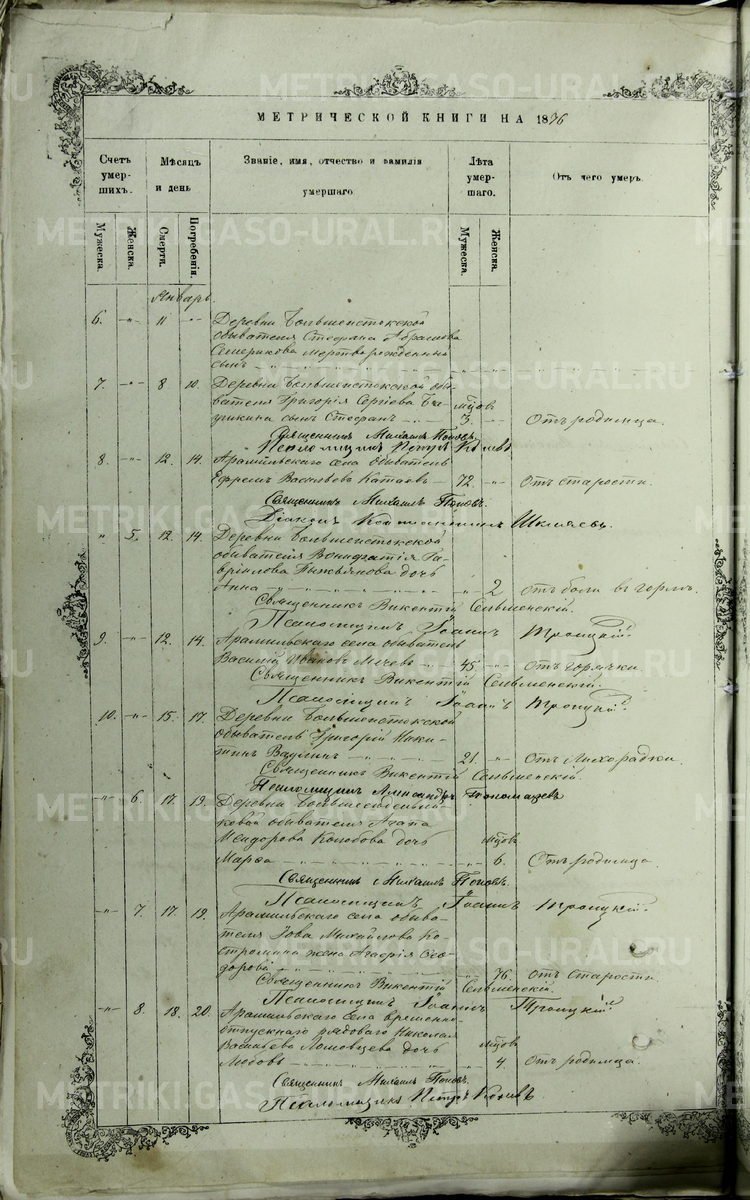 МЕТРИЧЕСКОЙ КНИГИ НА 1876
Счетъ умер- шихъ.
Мѣсяцъ и день
Званіе, имя, отчество и фамилія умершаго
Лѣта умер- шаго.
Отъ чего умеръ.
Мужеска. Женска. Смерти. Погребенія. Мужеска. Женска.
Январь.
6. -„- 11 Деревни Большеистокской
обывателя Стефана Абрамова
Семерикова мертворожденный
сынъ
7. -„- 8 10. Деревни Большеистокской обы-
вателя Григорія Сергіева
мцов
сынъ Стефанъ 3 Отъ родимца.
Священникъ Михаилъ Поповъ.
Псаломщикъ Петръ
8. -„- 12. 14. Арамильскаго села обыватель
Ефремъ Васильевъ Катаевъ 72. Отъ старости.
Священникъ Михаилъ Поповъ.
Діаконъ Константинъ Шкляевъ.
„ 5. 12. 14. Деревни Большеистокской
обывателя Вонифатія Га-
вріилова дочь
Анна 2 отъ боли въ горлѣ.
Священникъ Викентій Сельменскій.
Псаломщикъ Іоаннъ Троицкій.
9. -„- 12. 14. Арамильскаго села обыватель
Василій Ивановъ 45 Отъ горячки.
Священникъ Викентій Сельменскій.
Псаломщикъ Іоаннъ Троицкій.
10. -„- 15. 17. Деревни Большеистокской
обыватель Григорій Ники-
тинъ 21. Отъ лихорадки.
Священникъ Викентій Сельменскій.
Псаломщикъ Александръ Пономаревъ
-„- 6. 17. 19. Деревни
обывателя Агапа
дочь мцов
Марѳа 6. Отъ родимца.
Священникъ Михаилъ Поповъ.
Псаломщикъ Іоаннъ Троицкій.
-„- 7. 17. 19. Арамильскаго села обыва-
теля Іова Михайлова Ко-
стромина жена Ѳео-
дорова 76. отъ старости
Священникъ Викентій Сельменскій.
Псаломщикъ Іоаннъ Троицкій
-„- 8. 18. 20. Арамильскаго села временно
отпускнаго рядоваго Николая
Васильева Ломовцева дочь мцов
Любовь 4. отъ родимца.
Священникъ Михаилъ Поповъ.
Псаломщикъ Петръ
METRIKI.GASO-URAL.RU